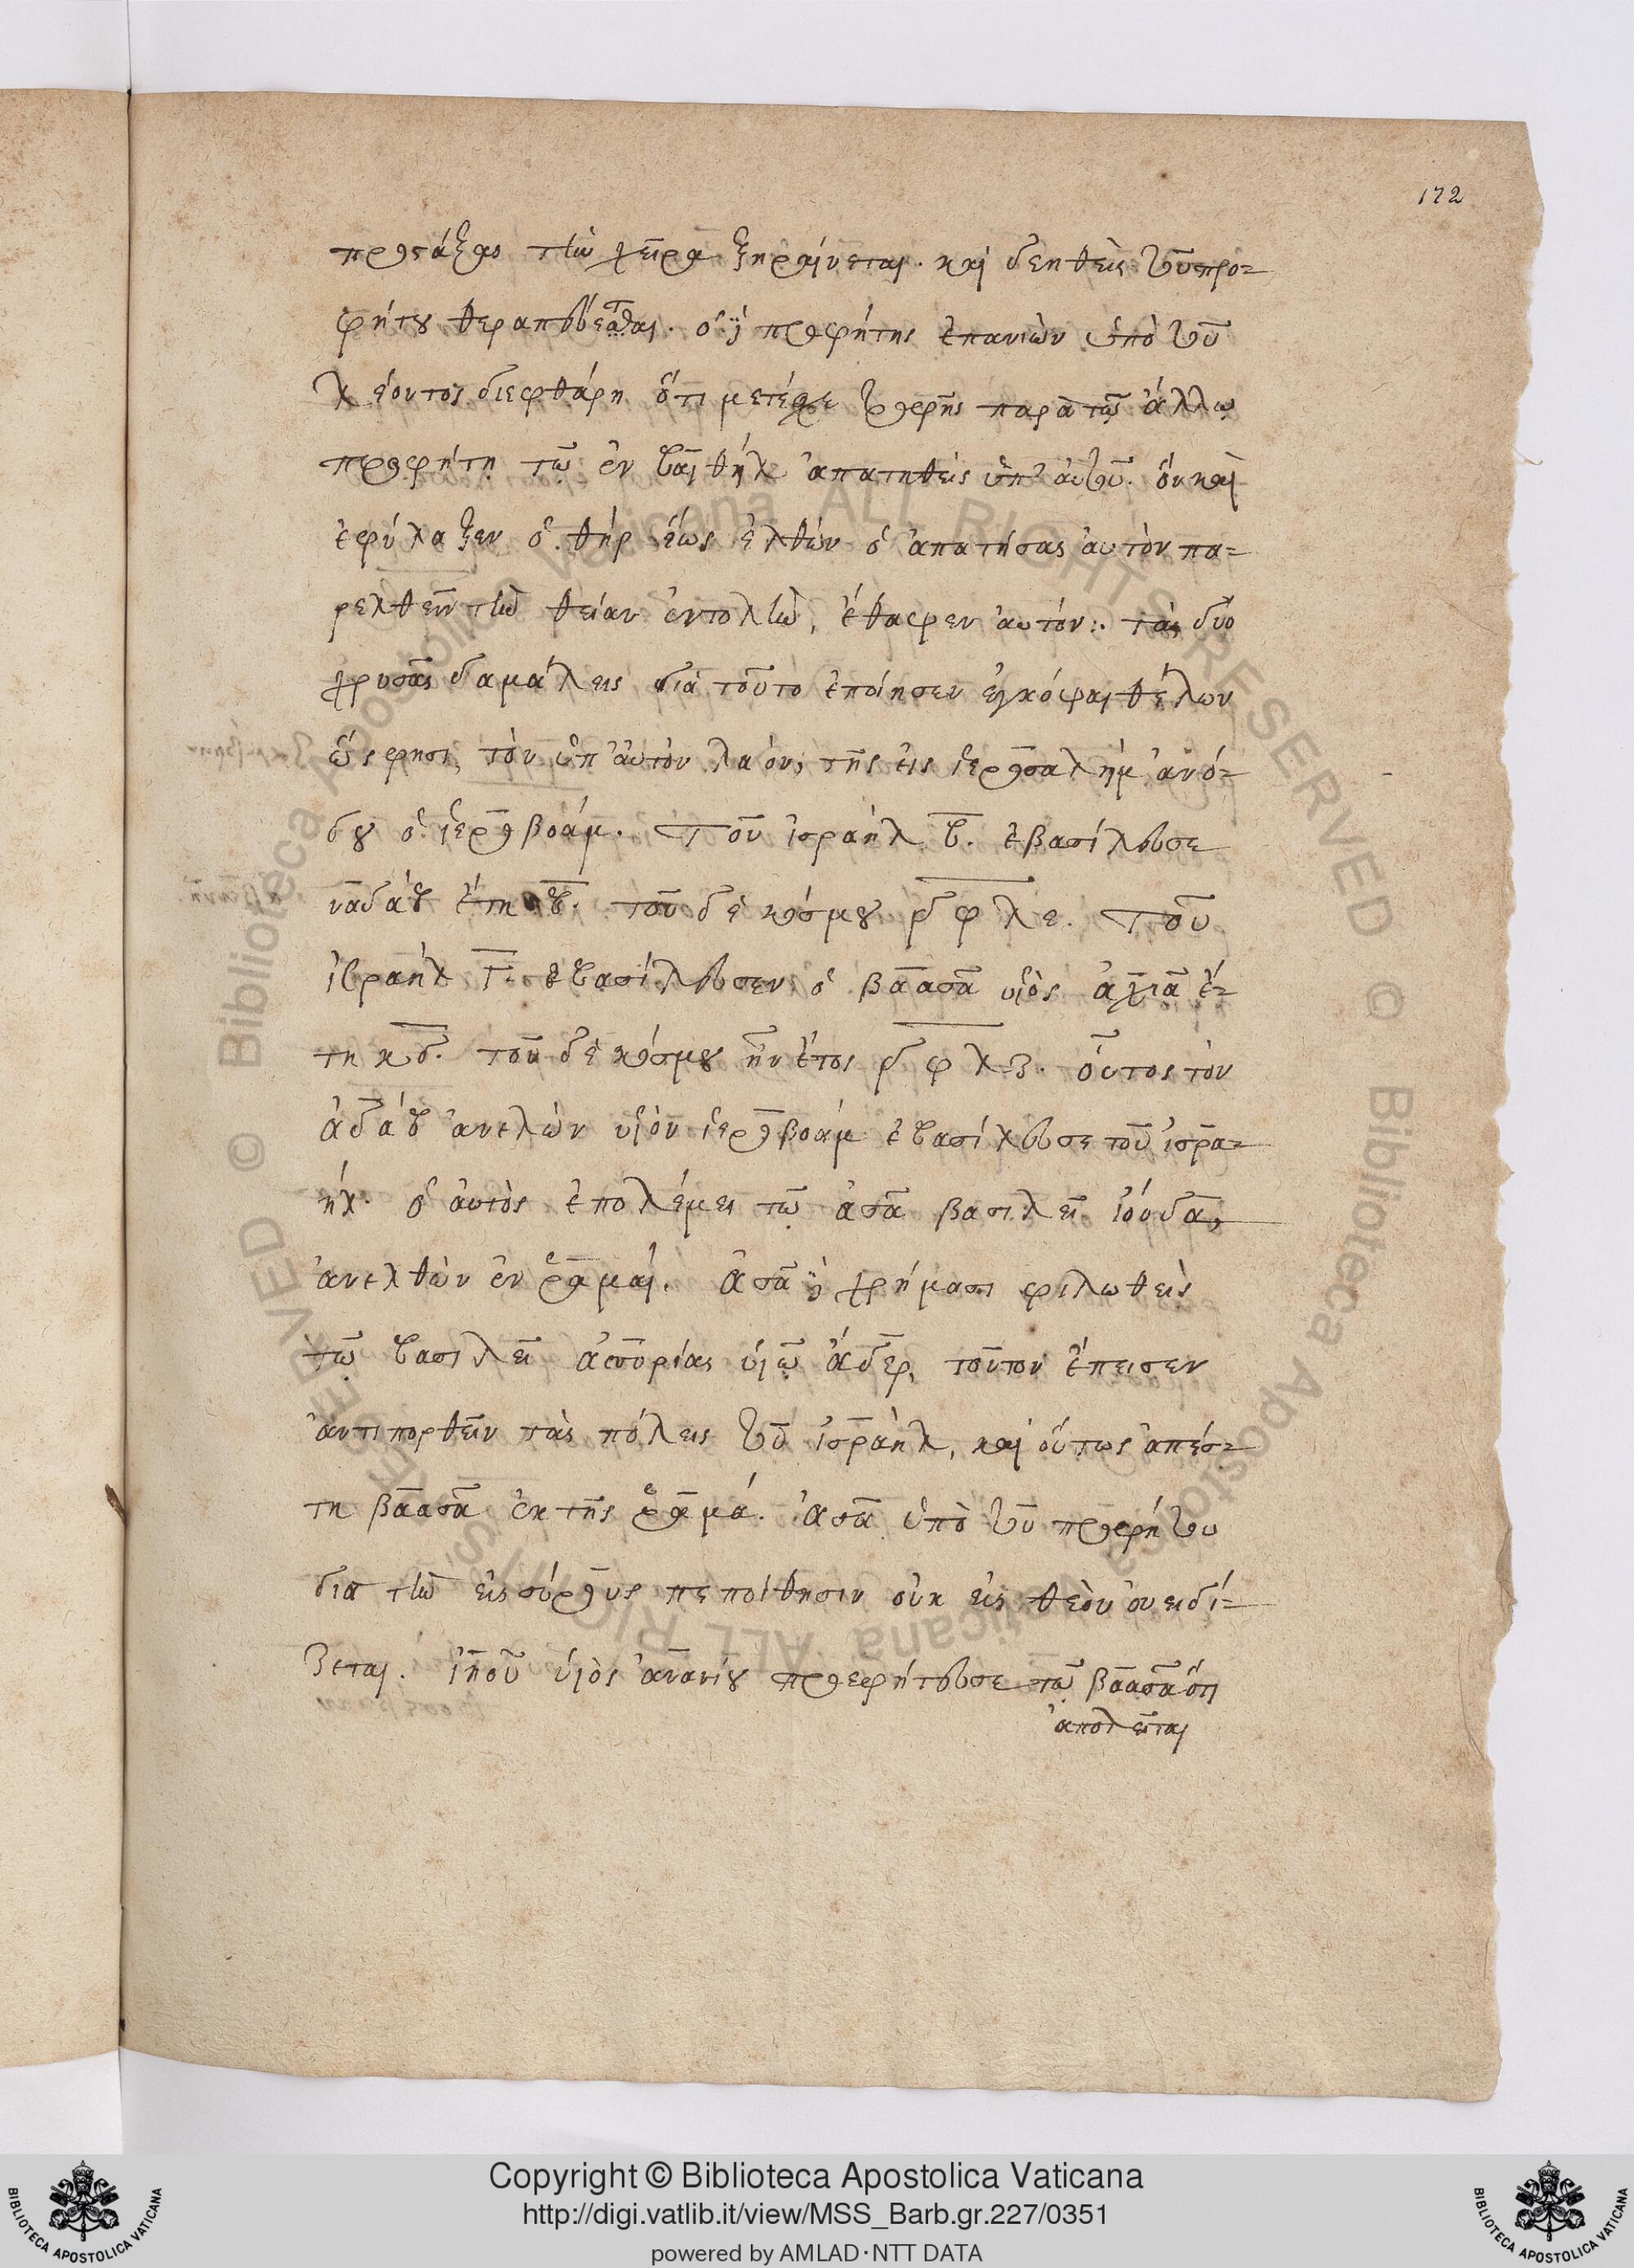 172
προστάξας τὴν χεῖρα ξηραίνεται. καὶ δεηθεὶς τοῦ προ=
φήτου θεραπεύεται. ὁ δὲ προφήτης ἐπανιὼν ὑπὸ τοῦ
λέοντος διεφθάρη ὅτι μετέσχε τροφῆς παρὰ τῷ ἄλλῳ
προφήτῃ τῷ ἐν βαιθὴλ ἀπατηθεὶς ὑπ' αὐτοῦ. ὃν καὶ
ἐφύλαξεν ὁ θὴρ ἕως ἐλθὼν ὁ ἀπατήσας αὐτὸν πα=
ρελθεῖν τὴν θείαν ἐντολὴν, ἔθαψεν αὐτόν: τὰς δύο
χρυσᾶς δαμάλεις διὰ τοῦτο ἐποίησεν ἐγκόψαι θέλων
ὥς φησι, τὸν ὑπ' αὐτὸν λαὸν, τῆς εἰς ἱερουσαλὴμ ἀνό=
δου ὁ ἱεροβοάμ. Τοῦ ἰσραὴλ β. ἐβασίλευσε
ναδὰβ ἔτη β. τοῦ δὲ κόσμου ͵δφλε. Τοῦ
ἰσραὴλ Γ. ἐβασίλευσεν ὁ βαασᾶ υἱὸς ἀχιᾶ ἔ=
τη κδ. τοῦ δὲ κόσμου ἦν ἔτος ͵δφλζ. οὗτος τὸν
ἀδὰβ ἀνελὼν υἱὸν ἱεροβοὰμ ἐβασίλευσε τοῦ ἰσρα=
ήλ. ὁ αὐτὸς ἐπολέμει τῷ ἀσᾶ βασιλεῖ ἰούδα,
ἀνελθὼν ἐν ῥαμαί. Ἀσᾶ δὲ χρήμασι φιλωθεὶς
τῷ βασιλεῖ ἀσσυρίας υἱῷ ἄδερ, τοῦτον ἔπεισεν
ἀντιπορθεῖν τὰς πόλεις τοῦ ἰσραὴλ, καὶ οὕτως ἀπέσ=
τη βαασᾶ ἐκ τῆς ῥαμά. Ἀσᾶ ὑπὸ τοῦ προφήτου
διὰ τὴν εἰς σύρους πεποίθησιν οὐκ εἰς θεὸν ὀνειδί=
ζεται. ἰησοῦ υἱὸς ἀνανίου προεφήτευσε τῷ βαασᾶ ὅτι
ἀπολεῖται
Copyright © Biblioteca Apostolica Vaticana
http://digi.vatlib.it/view/MSS_Barb.gr.227/0351
powered by AMLAD·NTT DATA